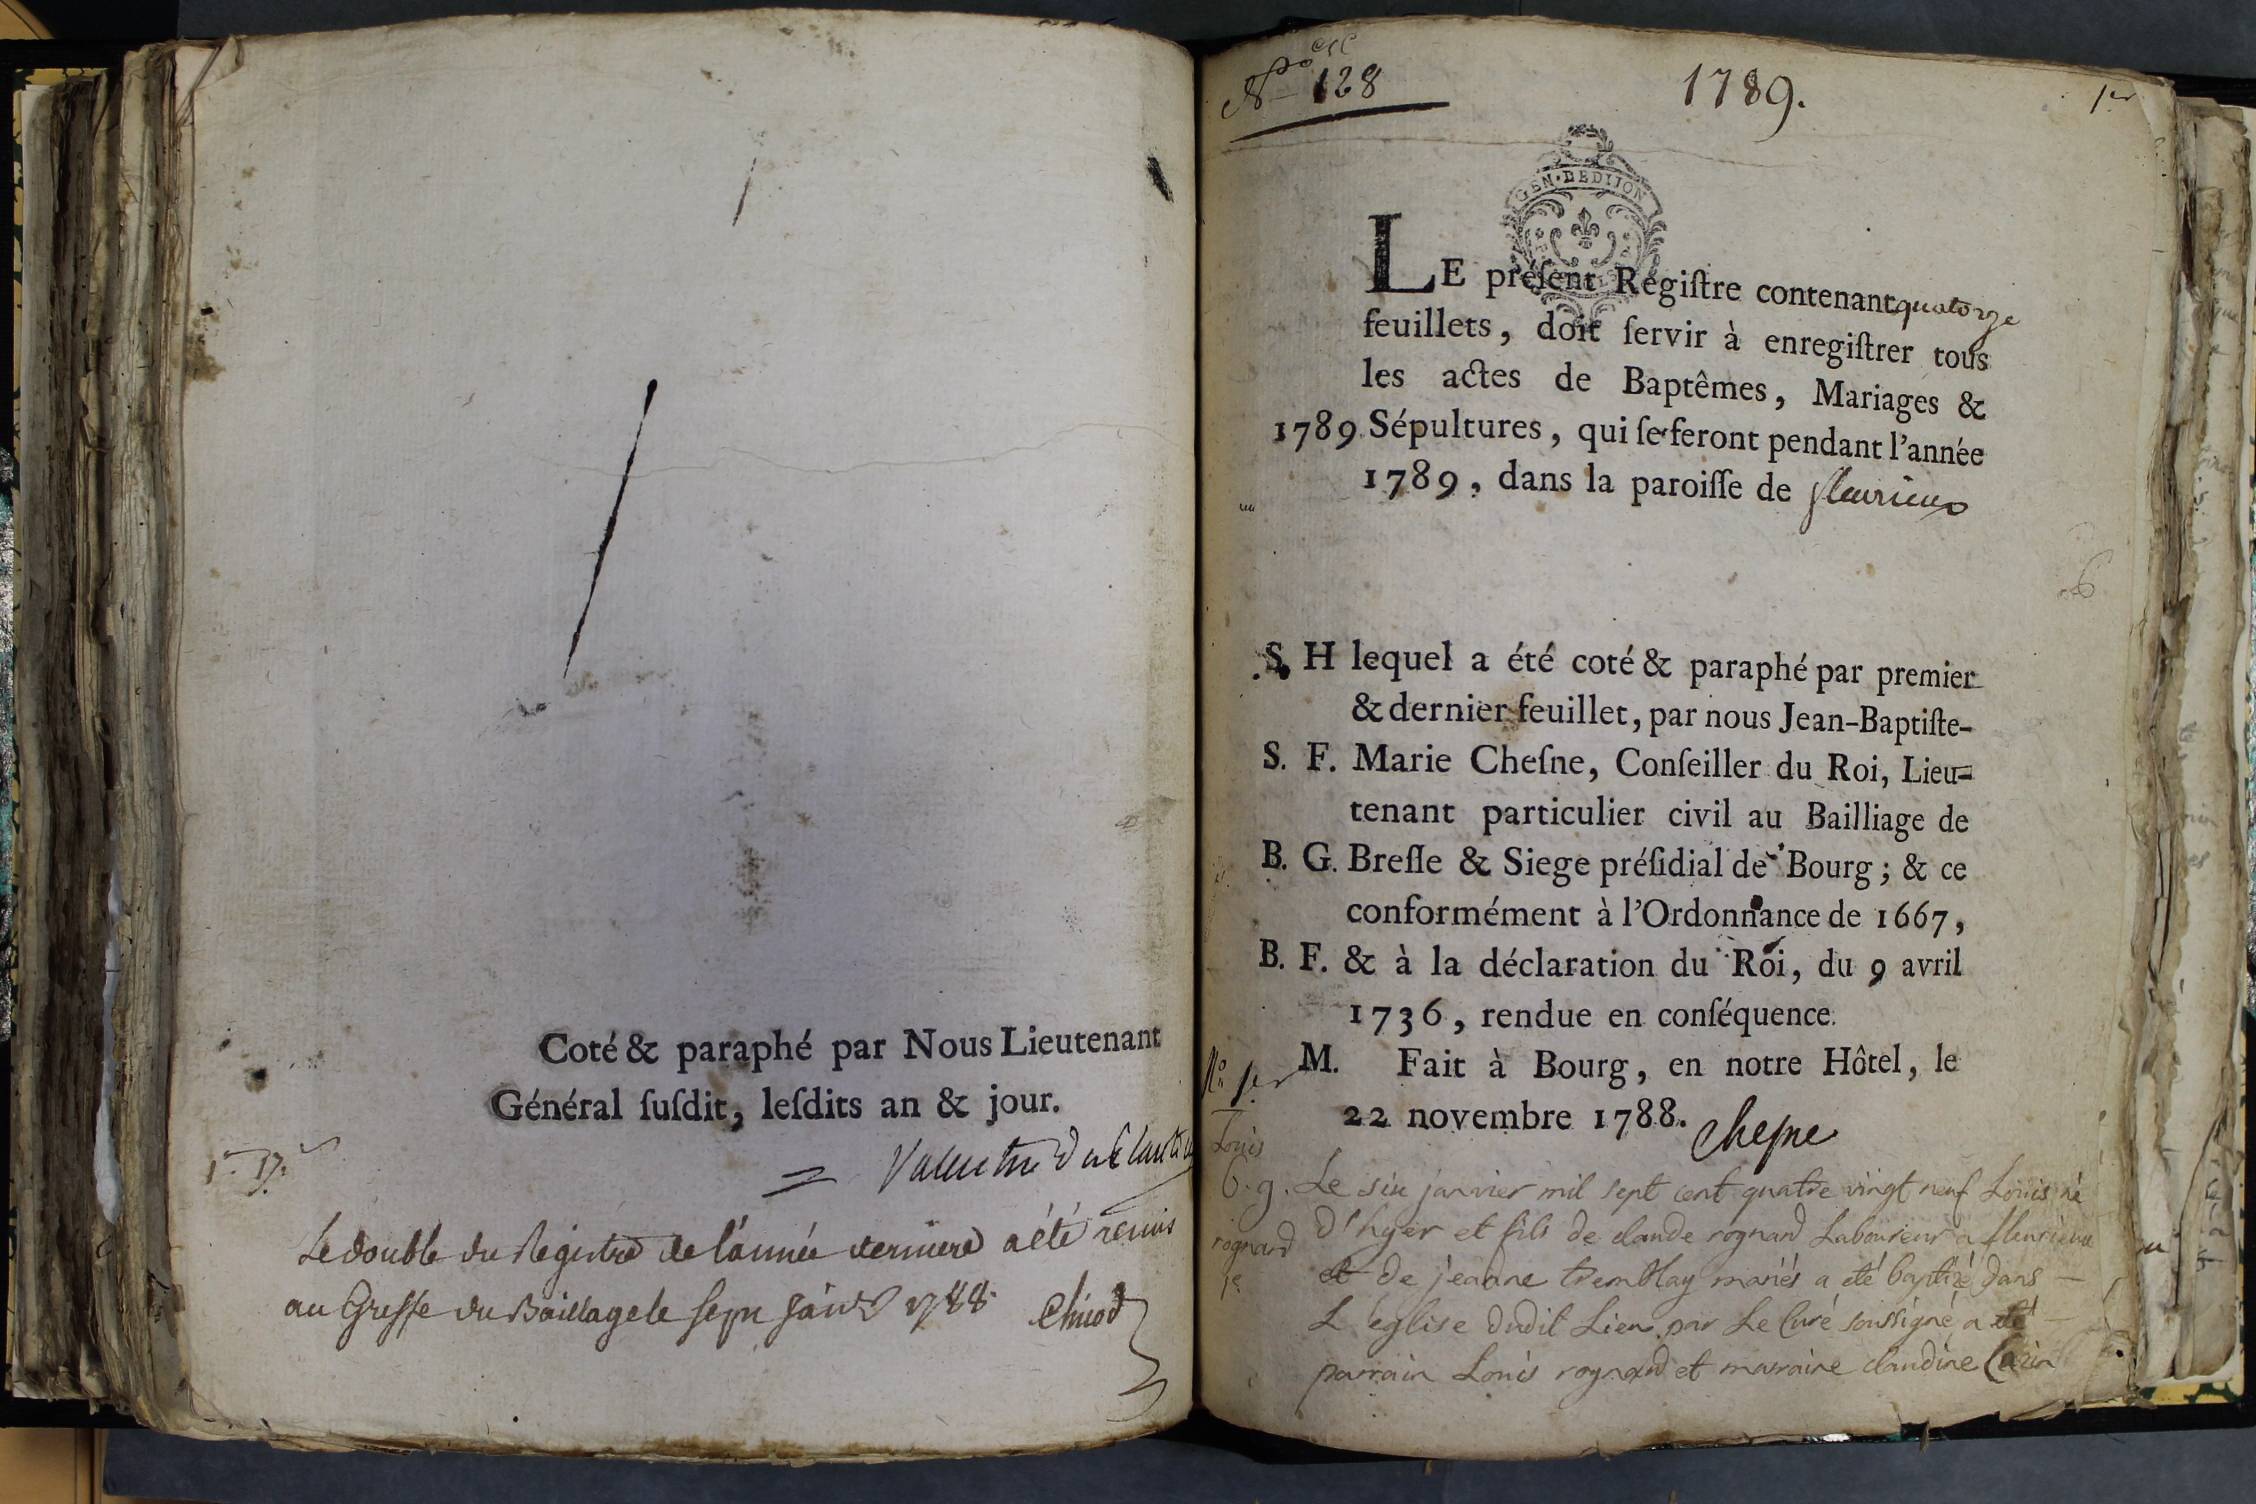 Coté & paraphé par Nous Lieutenant
Général ſuſdit, leſdits an & jour.
Le double du Registre de l'année derniere a été remis
au Greffe du Bailliage le sept janvr 1788
N° 128
1789.
1er
GEN·DEDIJON
LE préſent Regiſtre contenant quatorze
feuillets, doit ſervir à enregiſtrer tous
les actes de Baptêmes, Mariages &
1789 Sépultures, qui ſe feront pendant l'année
1789, dans la paroiſſe de fleurieux
S. H lequel a été coté & paraphé par premier
& dernier feuillet, par nous Jean-Baptiſte-
S. F. Marie Cheſne, Conſeiller du Roi, Lieu-
tenant particulier civil au Bailliage de
B. G. Breſſe & Siege préſidial de Bourg; & ce
conformément à l'Ordonnance de 1667,
B. F. & à la déclaration du Roi, du 9 avril
1736, rendue en conſéquence.
M. Fait à Bourg, en notre Hôtel, le
22 novembre 1788. Chesne
N° 1er
Louis
b. g.
rognard
1er
Le six janvier mil sept cent quatre vingt neuf Louis né
d'hyer et fils de claude rognard Laboureur a fleurieux
et de jeanne tremblay mariés a eté baptizé dans
L'église dudit Lieu par Le Curé soussigné a eté
parrain Louis rognard et marraine claudine